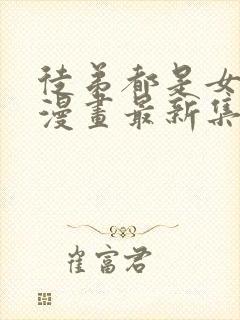 徒弟都是女
漫畫最新集
崔富君